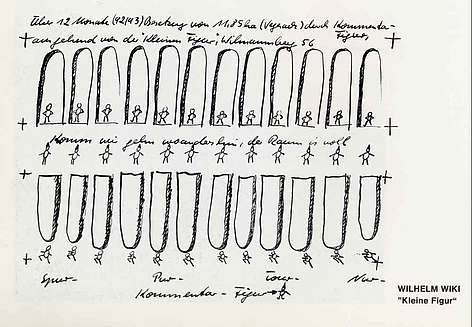 Über 12 Monate (42/43) Besetzung von 11.85 ha () durch Kommentar-
ausgehend von der "Kleinen Figur", 56 Figur,
Komm wir gehn woanders hin, der Raum is voll
Spur- Pur- Tour- Nur-
Kommentar- Figur
WILHELM WIKI
"Kleine Figur"